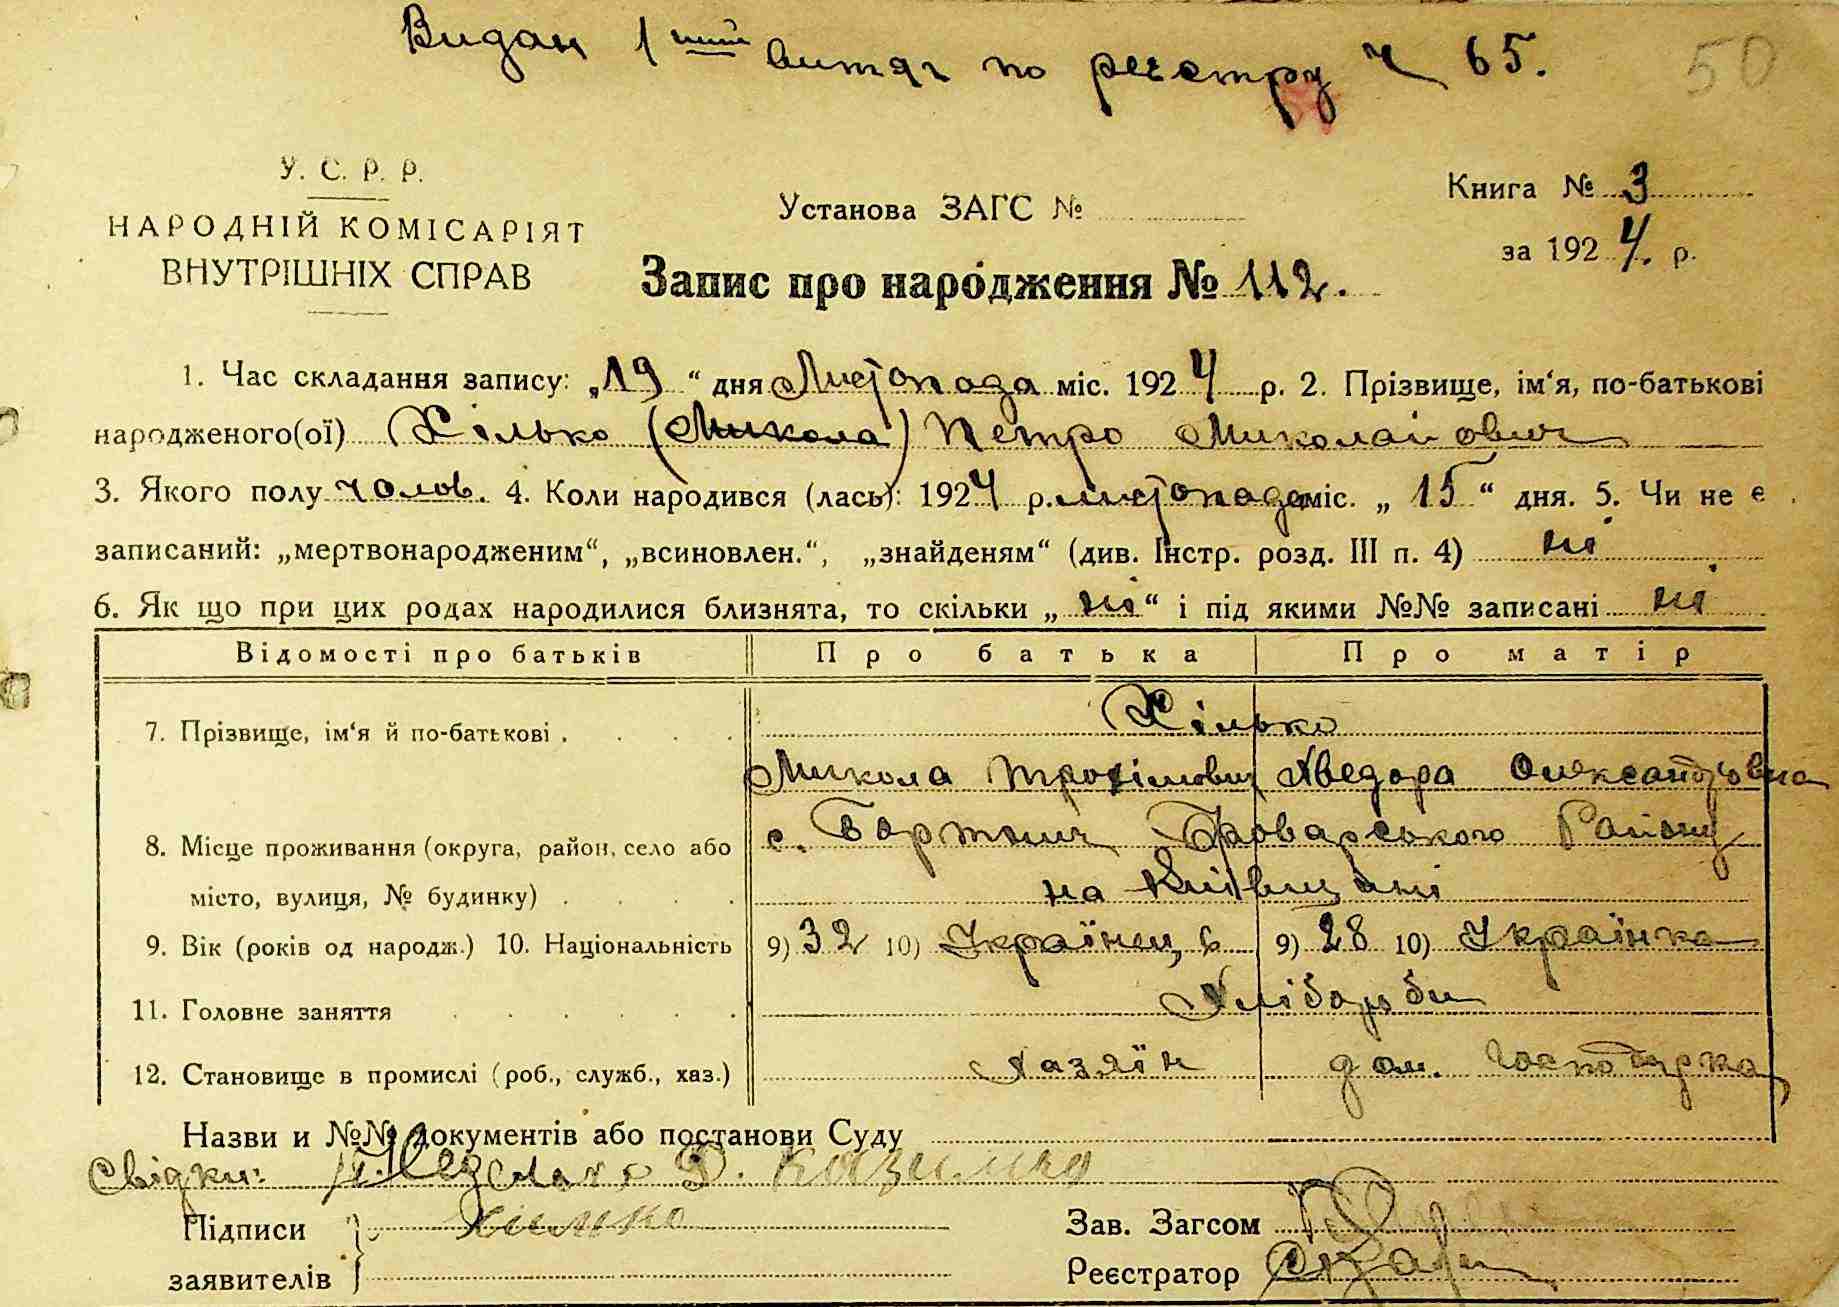 Видан 1ший витяг по реєстру Ч 65.
50
У. С. Р. Р.
НАРОДНІЙ КОМІСАРІЯТ
ВНУТРІШНІХ СПРАВ
Установа ЗАГС №
Книга № 3
за 1924. р.
Запис про народження № 112.
1. Час складання запису: „19“ дня Листопада міс. 1924 р. 2. Прізвище, ім‘я, по-батькові
народженого(ої) Хілько (Микола) Петро Миколайович
3. Якого полу чолов. 4. Коли народився (лась): 1924 р. листопада міс. „15“ дня. 5. Чи не є
записаний: „мертвонародженим“, „всиновлен.“, „знайденям“ (див. Інстр. розд. III п. 4) ні
6. Як що при цих родах народилися близнята, то скільки „ні“ і під якими №№ записані ні
Відомості про батьків Про батька Про матір
7. Прізвище, ім‘я й по-батькові . Хілько
Микола Трохімович Хведора Олександровна
8. Місце проживання (округа, район, село або с. Бортнич Броварського Району
місто, вулиця, № будинку) на Київщині
9. Вік (років од народж.) 10. Національність 9) 32 10) Українець 9) 28 10) Українка
11. Головне заняття Хлібороби
12. Становище в промислі (роб., служб., хаз.) Хазяїн дом. Господурка
Назви и №№ документів або постанови Суду
Свідки: Д.
Підписи Хилько
заявителів
Зав. Загсом
Реєстратор